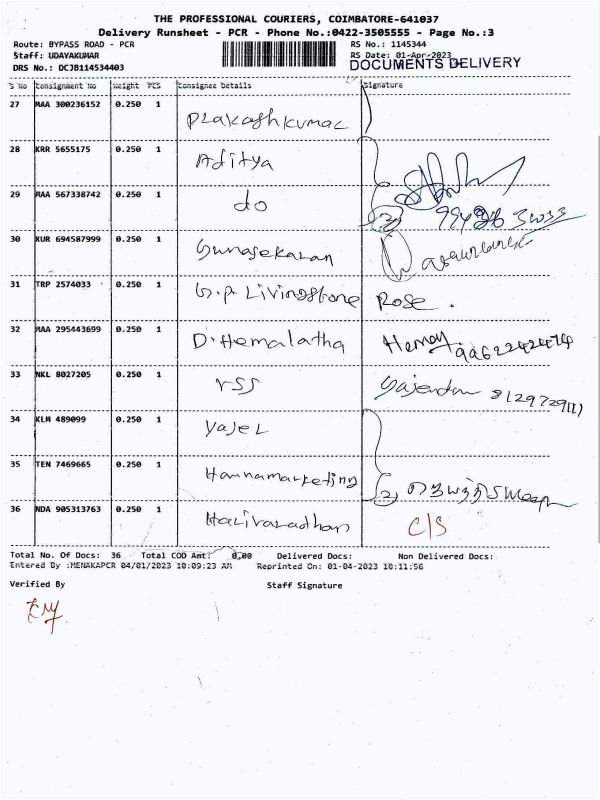 THE PROFESSIONAL COURIERS, COIMBATORE-641037
Delivery Runsheet - PCR - Phone No.:0422-3505555 - Page No.:3
Route: BYPASS ROAD - PCR RS No.: 1145344
Staff: UDAYAKUMAR RS Date: 01-Apr-2023
DRS No.: DCJB114534403 DOCUMENTS DELIVERY
S No Consignment No Weight PCS Consignee Details Signature
27 MAA 300236152 0.250 1 Prakashkumar
28 KRR 5655175 0.250 1 Aditya
29 MAA 567338742 0.250 1 do
30 KUR 694587999 0.250 1 Gunasekaran
31 TRP 2574033 0.250 1 G.P Livingstone Rose.
32 MAA 295443699 0.250 1 D.Hemalatha Hema 9962242474
33 NKL 8027205 0.250 1 rss Gajendran 8129729111
34 KLM 489099 0.250 1 
35 TEN 7469665 0.250 1 Hannamarketing
36 NDA 905313763 0.250 1 Harivaradhan C/S
Total No. Of Docs: 36 Total COD Amt: 0.00 Delivered Docs: Non Delivered Docs:
Entered By :MENAKAPCR 04/01/2023 10:09:23 AM Reprinted On: 01-04-2023 10:11:56
Verified By Staff Signature